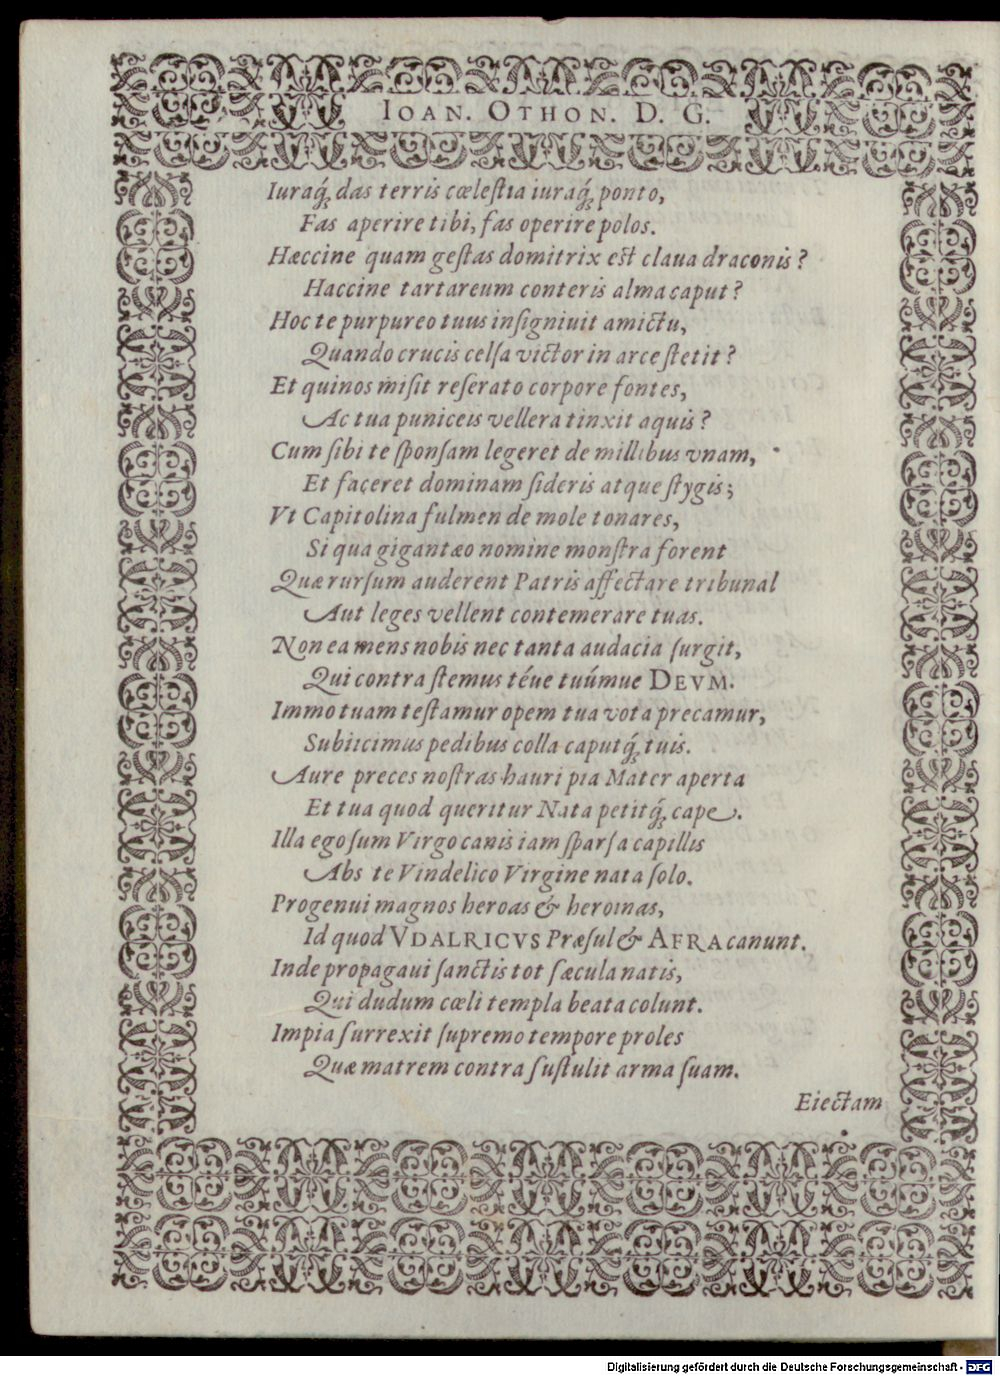 IOAN. OTHON. D. G.
Iuraq́; das terris cœlestia iuraq́; ponto,
Fas aperire tibi, fas operire polos.
Hæccine quam gestas domitrix est claua draconis?
Haccine tartareum conteris alma caput?
Hoc te purpureo tuus insigniuit amictu,
Quando crucis celsa victor in arce stetit?
Et quinos misit reserato corpore fontes,
Ac tua puniceis vellera tinxit aquis?
Cum sibi te sponsam legeret de millibus vnam,
Et faceret dominam sideris atque stygis;
Vt Capitolina fulmen de mole tonares,
Si qua gigantæo nomine monstra forent
Quæ rursum auderent Patris affectare tribunal
Aut leges vellent contemerare tuas.
Non ea mens nobis nec tanta audacia surgit,
Qui contra stemus téue tuúmue DEVM.
Immo tuam testamur opem tua vota precamur,
Subiicimus pedibus colla caputq́; tuis.
Aure preces nostras hauri pia Mater aperta
Et tua quod queritur Nata petitq́; cape.
Illa ego sum Virgo canis iam sparsa capillis
Abs te Vindelico Virgine nata solo.
Progenui magnos heroas & heroinas,
Id quod VDALRICVS Præsul & AFRA canunt.
Inde propagaui sanctis tot sæcula natis,
Qui dudum cœli templa beata colunt.
Impia surrexit supremo tempore proles
Quæ matrem contra sustulit arma suam.
Eiectam
Digitalisierung gefördert durch die Deutsche Forschungsgemeinschaft - DFG